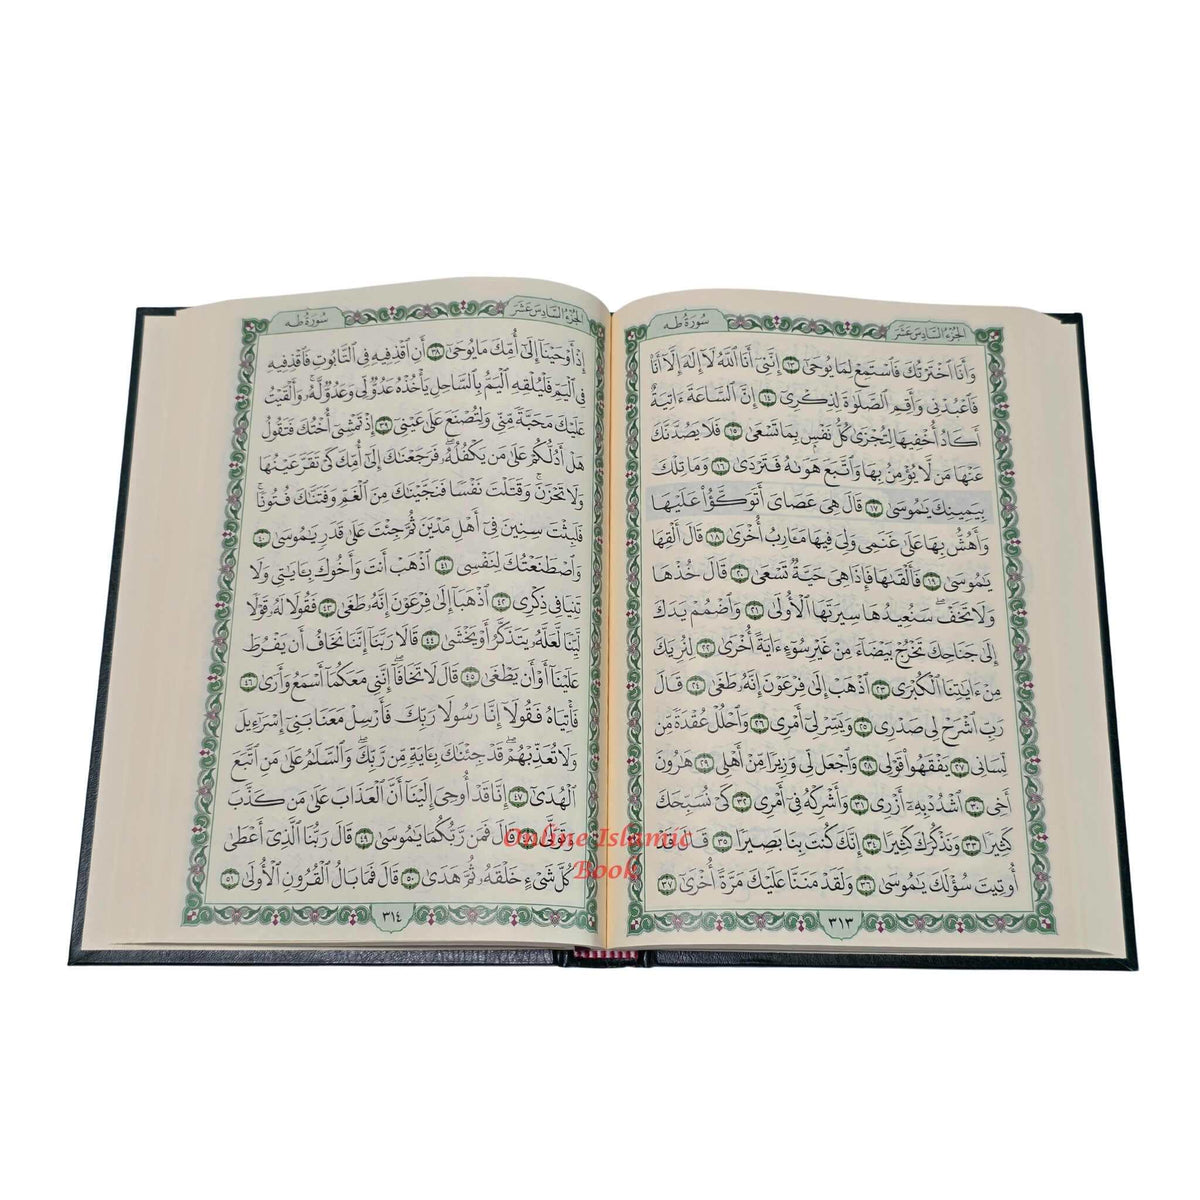 الجزء السادس عشر
سورة طه
وَأَنَا ٱخْتَرْتُكَ فَٱسْتَمِعْ لِمَا يُوحَىٰٓ ١٣ إِنَّنِىٓ أَنَا ٱللَّهُ لَآ إِلَٰهَ إِلَّآ أَنَا۠
فَٱعْبُدْنِى وَأَقِمِ ٱلصَّلَوٰةَ لِذِكْرِىٓ ١٤ إِنَّ ٱلسَّاعَةَ ءَاتِيَةٌ
أَكَادُ أُخْفِيهَا لِتُجْزَىٰ كُلُّ نَفْسٍۭ بِمَا تَسْعَىٰ ١٥ فَلَا يَصُدَّنَّكَ
عَنْهَا مَن لَّا يُؤْمِنُ بِهَا وَٱتَّبَعَ هَوَىٰهُ فَتَرْدَىٰ ١٦ وَمَا تِلْكَ
بِيَمِينِكَ يَٰمُوسَىٰ ١٧ قَالَ هِىَ عَصَاىَ أَتَوَكَّؤُا۟ عَلَيْهَا
وَأَهُشُّ بِهَا عَلَىٰ غَنَمِى وَلِىَ فِيهَا مَـَٔارِبُ أُخْرَىٰ ١٨ قَالَ أَلْقِهَا
يَٰمُوسَىٰ ١٩ فَأَلْقَىٰهَا فَإِذَا هِىَ حَيَّةٌ تَسْعَىٰ ٢٠ قَالَ خُذْهَا
وَلَا تَخَفْ ۖ سَنُعِيدُهَا سِيرَتَهَا ٱلْأُولَىٰ ٢١ وَٱضْمُمْ يَدَكَ
إِلَىٰ جَنَاحِكَ تَخْرُجْ بَيْضَآءَ مِنْ غَيْرِ سُوٓءٍ ءَايَةً أُخْرَىٰ ٢٢ لِنُرِيَكَ
مِنْ ءَايَٰتِنَا ٱلْكُبْرَى ٢٣ ٱذْهَبْ إِلَىٰ فِرْعَوْنَ إِنَّهُۥ طَغَىٰ ٢٤ قَالَ
رَبِّ ٱشْرَحْ لِى صَدْرِى ٢٥ وَيَسِّرْ لِىٓ أَمْرِى ٢٦ وَٱحْلُلْ عُقْدَةً مِّن
لِّسَانِى ٢٧ يَفْقَهُوا۟ قَوْلِى ٢٨ وَٱجْعَل لِّى وَزِيرًا مِّنْ أَهْلِى ٢٩ هَٰرُونَ
أَخِى ٣٠ ٱشْدُدْ بِهِۦٓ أَزْرِى ٣١ وَأَشْرِكْهُ فِىٓ أَمْرِى ٣٢ كَىْ نُسَبِّحَكَ
كَثِيرًا ٣٣ وَنَذْكُرَكَ كَثِيرًا ٣٤ إِنَّكَ كُنتَ بِنَا بَصِيرًا ٣٥ قَالَ قَدْ
أُوتِيتَ سُؤْلَكَ يَٰمُوسَىٰ ٣٦ وَلَقَدْ مَنَنَّا عَلَيْكَ مَرَّةً أُخْرَىٰٓ ٣٧
٣١٣
الجزء السادس عشر
سورة طه
إِذْ أَوْحَيْنَآ إِلَىٰٓ أُمِّكَ مَا يُوحَىٰٓ ٣٨ أَنِ ٱقْذِفِيهِ فِى ٱلتَّابُوتِ فَٱقْذِفِيهِ
فِى ٱلْيَمِّ فَلْيُلْقِهِ ٱلْيَمُّ بِٱلسَّاحِلِ يَأْخُذْهُ عَدُوٌّ لِّى وَعَدُوٌّ لَّهُۥ ۚ وَأَلْقَيْتُ
عَلَيْكَ مَحَبَّةً مِّنِّى وَلِتُصْنَعَ عَلَىٰ عَيْنِىٓ ٣٩ إِذْ تَمْشِىٓ أُخْتُكَ فَتَقُولُ
هَلْ أَدُلُّكُمْ عَلَىٰ مَن يَكْفُلُهُۥ ۖ فَرَجَعْنَٰكَ إِلَىٰٓ أُمِّكَ كَىْ تَقَرَّ عَيْنُهَا
وَلَا تَحْزَنَ ۚ وَقَتَلْتَ نَفْسًا فَنَجَّيْنَٰكَ مِنَ ٱلْغَمِّ وَفَتَنَّٰكَ فُتُونًا ۚ
فَلَبِثْتَ سِنِينَ فِىٓ أَهْلِ مَدْيَنَ ثُمَّ جِئْتَ عَلَىٰ قَدَرٍ يَٰمُوسَىٰ ٤٠
وَٱصْطَنَعْتُكَ لِنَفْسِى ٤١ ٱذْهَبْ أَنتَ وَأَخُوكَ بِـَٔايَٰتِى وَلَا
تَنِيَا فِى ذِكْرِى ٤٢ ٱذْهَبَآ إِلَىٰ فِرْعَوْنَ إِنَّهُۥ طَغَىٰ ٤٣ فَقُولَا لَهُۥ قَوْلًا
لَّيِّنًا لَّعَلَّهُۥ يَتَذَكَّرُ أَوْ يَخْشَىٰ ٤٤ قَالَا رَبَّنَآ إِنَّنَا نَخَافُ أَن يَفْرُطَ
عَلَيْنَآ أَوْ أَن يَطْغَىٰ ٤٥ قَالَ لَا تَخَافَآ ۖ إِنَّنِى مَعَكُمَآ أَسْمَعُ وَأَرَىٰ ٤٦
فَأْتِيَاهُ فَقُولَآ إِنَّا رَسُولَا رَبِّكَ فَأَرْسِلْ مَعَنَا بَنِىٓ إِسْرَٰٓءِيلَ
وَلَا تُعَذِّبْهُمْ ۖ قَدْ جِئْنَٰكَ بِـَٔايَةٍ مِّن رَّبِّكَ ۖ وَٱلسَّلَٰمُ عَلَىٰ مَنِ ٱتَّبَعَ
ٱلْهُدَىٰٓ ٤٧ إِنَّا قَدْ أُوحِىَ إِلَيْنَآ أَنَّ ٱلْعَذَابَ عَلَىٰ مَن كَذَّبَ
وَتَوَلَّىٰ ٤٨ قَالَ فَمَن رَّبُّكُمَا يَٰمُوسَىٰ ٤٩ قَالَ رَبُّنَا ٱلَّذِىٓ أَعْطَىٰ
كُلَّ شَىْءٍ خَلْقَهُۥ ثُمَّ هَدَىٰ ٥٠ قَالَ فَمَا بَالُ ٱلْقُرُونِ ٱلْأُولَىٰ ٥١
٣١٤
Online Islamic
Book